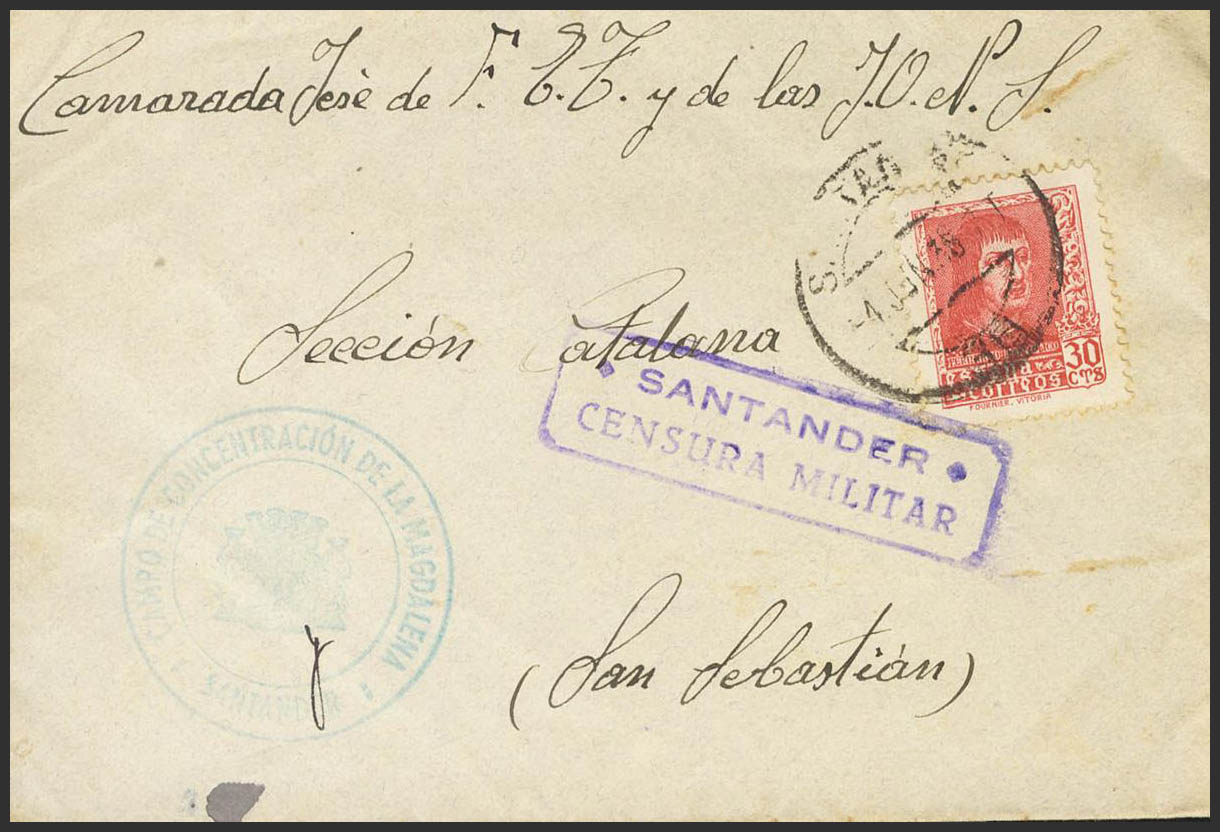 Camarada Jesè de F. E. T. y de las J. O. N. S.
Sección Catalana
SANTANDER
CENSURA MILITAR
(San Sebastián)
CAMPO DE CONCENTRACIÓN DE LA MAGDALENA
SANTANDER
-4 JUN. 38
30
CTS
CORREOS
FOURNIER. VITORIA